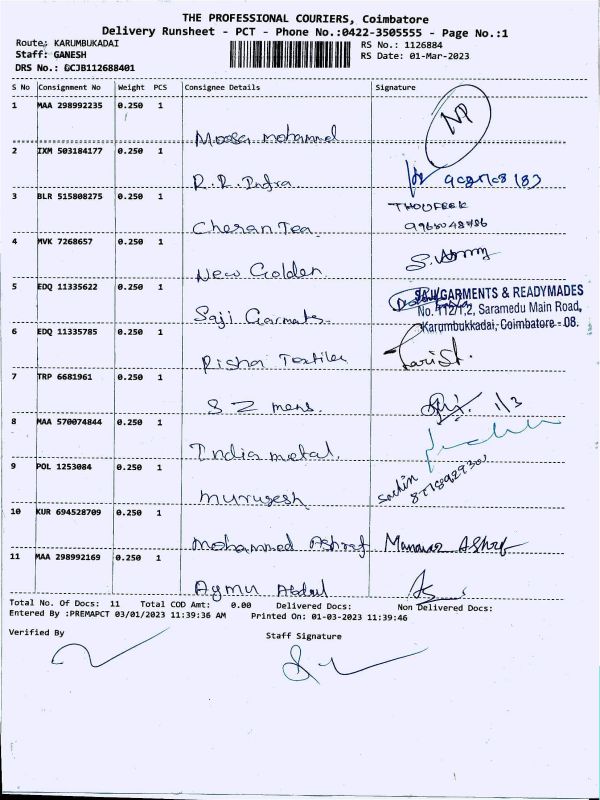 THE PROFESSIONAL COURIERS, Coimbatore
Delivery Runsheet - PCT - Phone No.:0422-3505555 - Page No.:1
Route: KARUMBUKADAI
Staff: GANESH
DRS No.: DCJB112688401
RS No.: 1126884
RS Date: 01-Mar-2023
S No Consignment No Weight PCS Consignee Details Signature
1 MAA 298992235 0.250 1
Moosa mohammed NP
2 IXM 503184177 0.250 1
R.R. Infra
3 BLR 515808275 0.250 1
THOUFEEK
Cheran Tea
4 MVK 7268657 0.250 1
New Golden
5 EDQ 11335622 0.250 1
SAJI GARMENTS & READYMADES
No. 112/1,2, Saramedu Main Road,
Saji Garments
Karumbukkadai, Coimbatore - 08.
6 EDQ 11335785 0.250 1
Risha Textiles
7 TRP 6681961 0.250 1
S Z mens. 1/3
8 MAA 570074844 0.250 1
India metal.
9 POL 1253084 0.250 1
Sachin
murugesh
10 KUR 694528709 0.250 1
Mohammed Ashraf
11 MAA 298992169 0.250 1
Abdul
Total No. Of Docs: 11 Total COD Amt: 0.00 Delivered Docs: Non Delivered Docs:
Entered By :PREMAPCT 03/01/2023 11:39:36 AM Printed On: 01-03-2023 11:39:46
Verified By Staff Signature